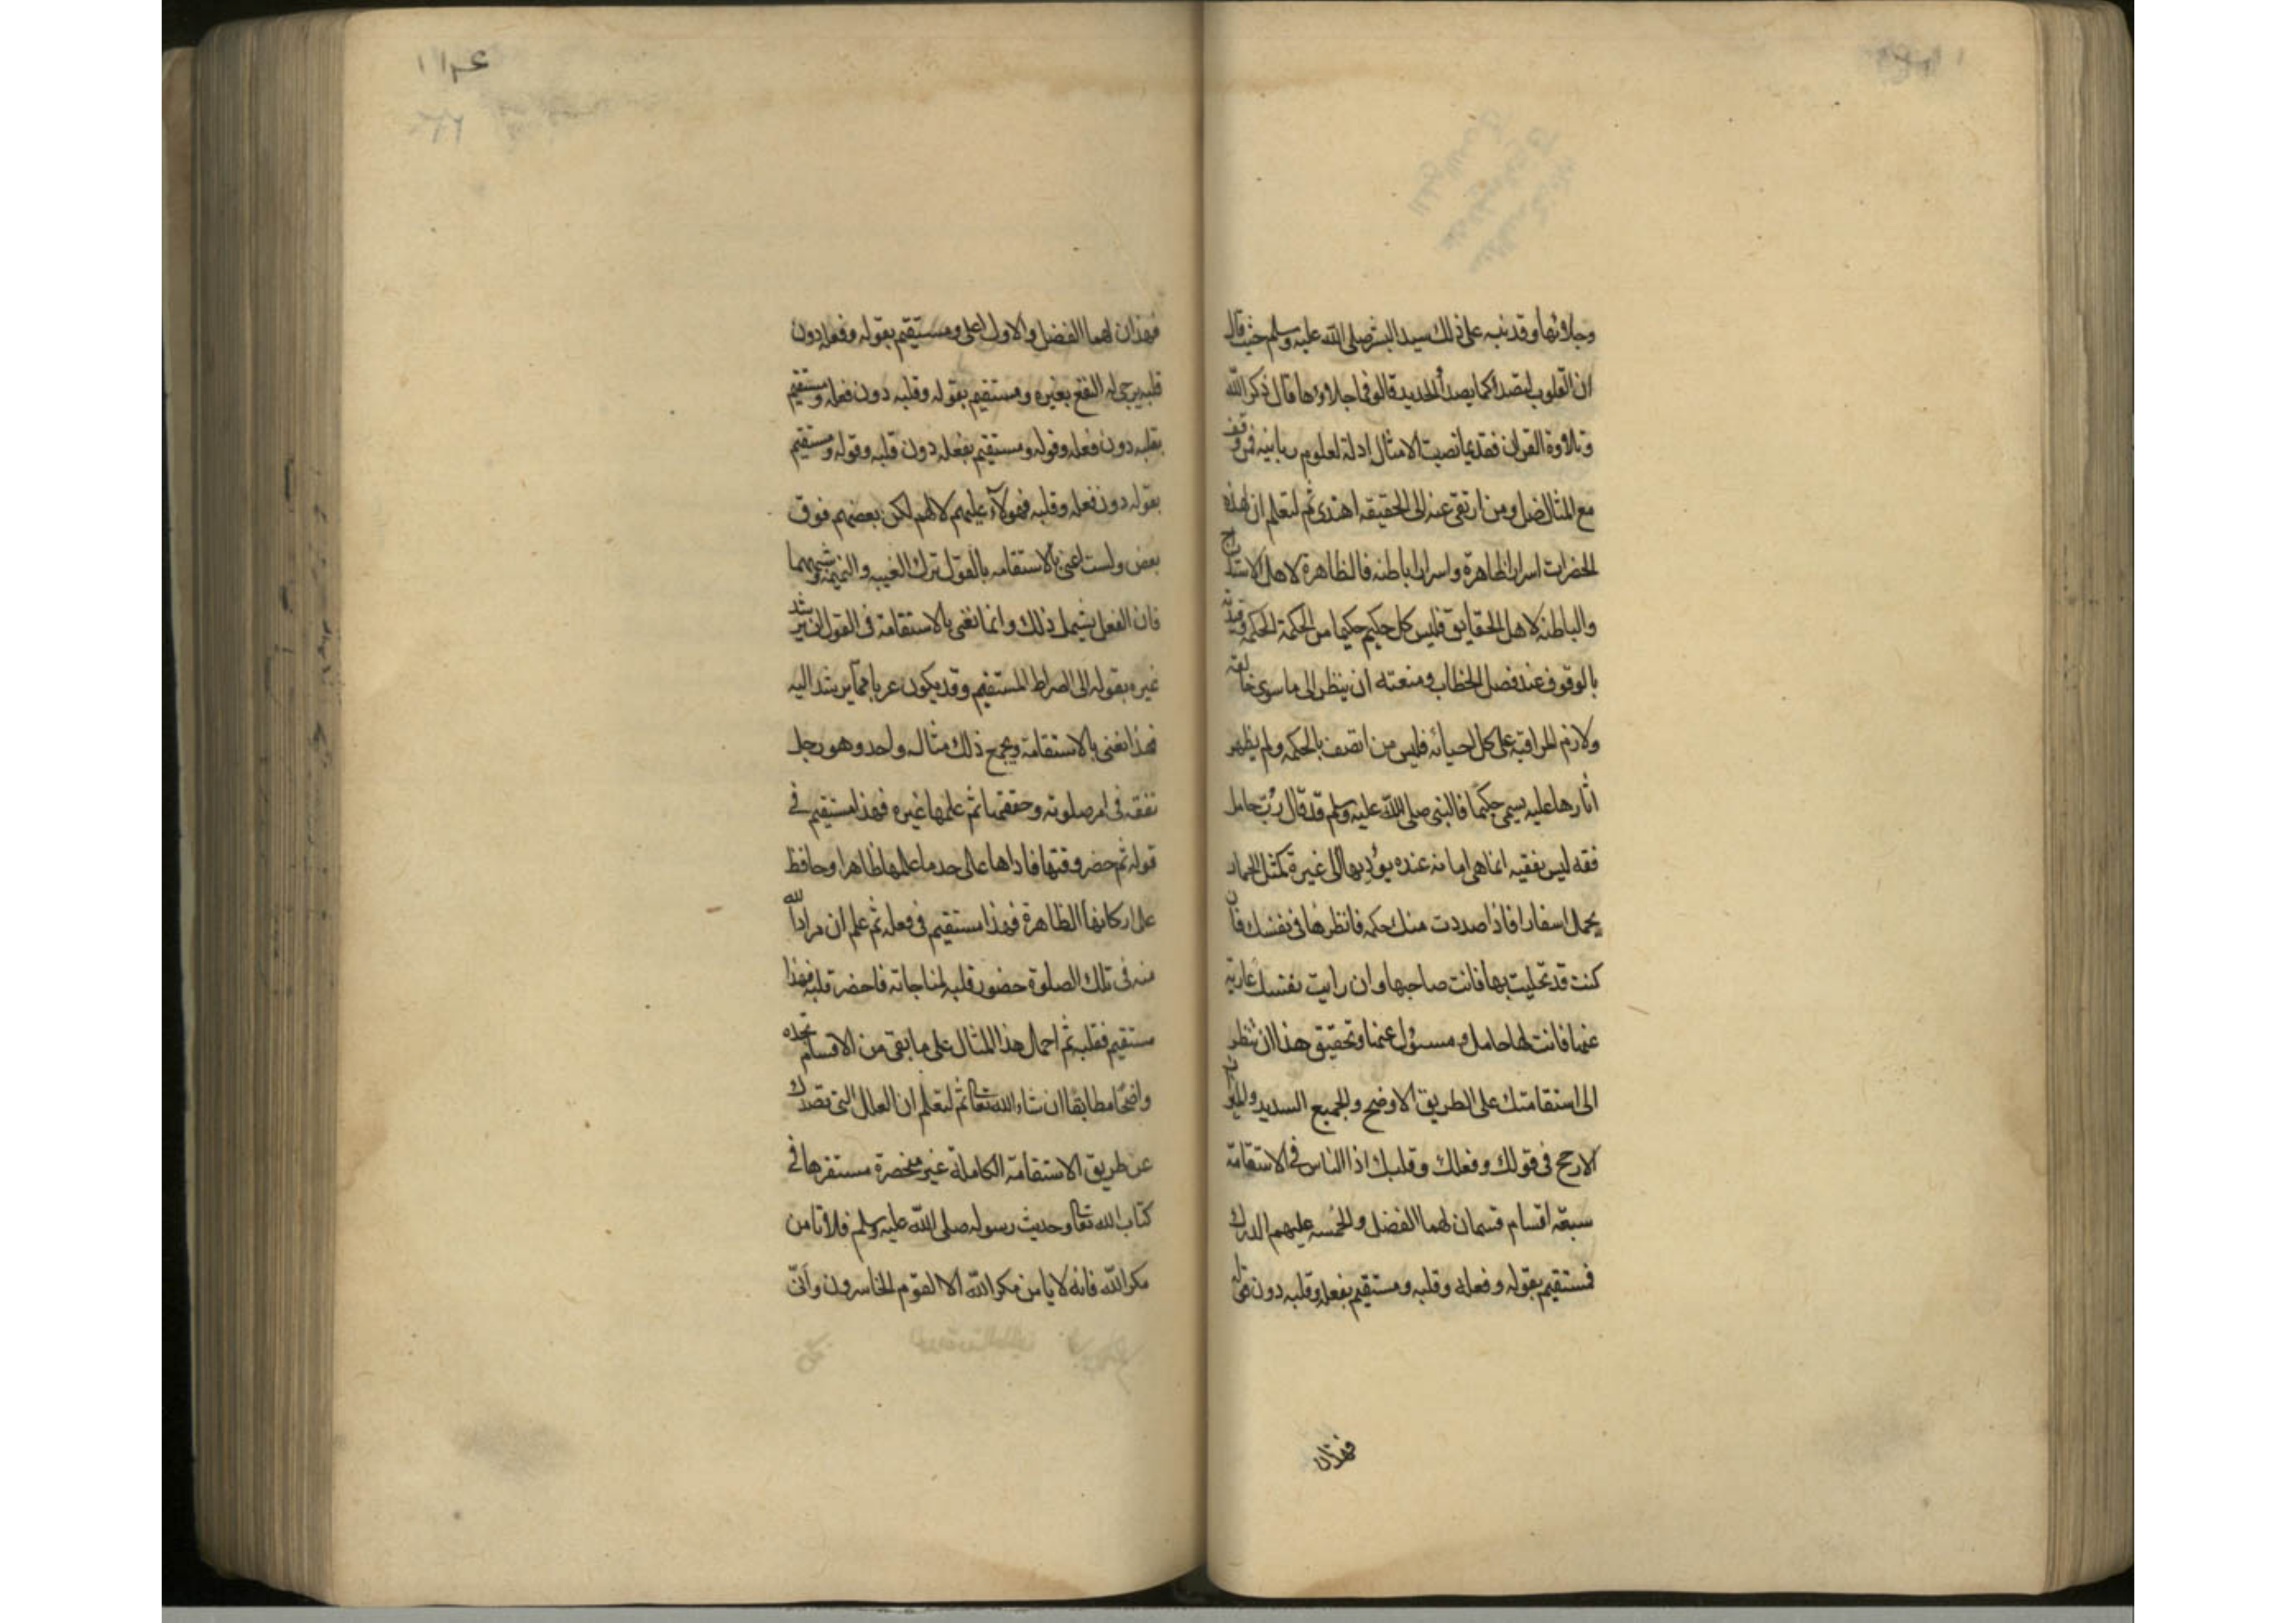 وجلاوئها وقد نبه على ذلك سيد البشر صلى الله عليه وسلم حيث قال
ان القلوب لتصدا كما يصدأ الحديد قالوا فما جلاوها قال ذكر الله
وتلاوة القران فقديما نصبت الامثال ادلة لعلوم ربانيه فمن وقف
مع المثال ضل ومن ارتقى عنه الى الحقيقه اهتدى ثم لتعلم ان لهذه
الحضرات اسرارا ظاهرة واسرارا باطنه فالظاهرة لاهل الاستدراج
والباطنه لاهل الحقايق فليس كل حكيم حكيما من الحكمة الحكيم من قيدته
بالوقوف عند فصل الخطاب ومنعته ان ينظر الى ما سوى خالقه
ولازم المراقبة على كل احيانه فليس من اتصف بالحكمه ولم يظهر
اثارها عليه يسمى حكيما فالنبى صلى الله عليه وسلم قد قال رب حامل
فقه ليس بفقيه انما هى امانه عنده يؤديها الى غيره كمثل الحمار
يحمل اسفارا فاذا صددت منك حكمه فانظرها فى نفسك فان
كنت قد تحليت بها فانت صاحبها وان رايت نفسك عارية
عنها فانت لها حامل ومسئول عنها وتحقيق هذا ان تنظر
الى استقامتك على الطريق الاوضح والجميع السديد والميزان
الارجح فى قولك وفعلك وقلبك اذ الناس فى الاستقامة
سبعة اقسام قسمان لهما الفضل والخمسه عليهم الدرك
فمستقيم بقوله وفعله وقلبه ومستقيم بفعله وقلبه دون قوله
فهذان
فهذان لهما الفضل والاول اعلى ومستقيم بقوله وفعله دون
قلبه يرجى له النفع بغيره ومستقيم بقوله وقلبه دون فعله ومستقيم
بقلبه دون فعله وقوله ومستقيم بفعله دون قلبه وقوله ومستقيم
بقوله دون فعله وقلبه فهولآء عليهم لا لهم لكن بعضهم فوق
بعض ولست اعنى بالاستقامه بالقول ترك الغيبه والنميمة وشبههما
فان الفعل يشمل ذلك وانما نعنى بالاستقامة فى القول ان يرشد
غيره بقوله الى الصراط المستقيم وقد يكون عريا مما يرشد اليه
فهذا نعنى بالاستقامة ويجمع ذلك مثال واحد وهو رجل
تفقه فى امر صلوته وحققها ثم علمها غيره فهذا مستقيم فى
قوله ثم حضر وقتها فاداها على حد ما علمها ظاهرا وحافظ
على اركانها الظاهرة فهذا مستقيم فى فعله ثم علم ان مراد الله
منه فى تلك الصلوة حضور قلبه لمناجاته فاحضر قلبه فهذا
مستقيم فقلبه ثم احمل هذا المثال على ما بقى من الاقسام تجده
واضحا مطابقا ان شاء الله تعالى ثم لتعلم ان العلل التى تصدك
عن طريق الاستقامة الكاملة غير منحصرة مستقرها فى
كتاب الله تعالى وحديث رسوله صلى الله عليه وسلم فلا تامن
مكر الله فانه لا يامن مكر الله الا القوم الخاسرون وانى